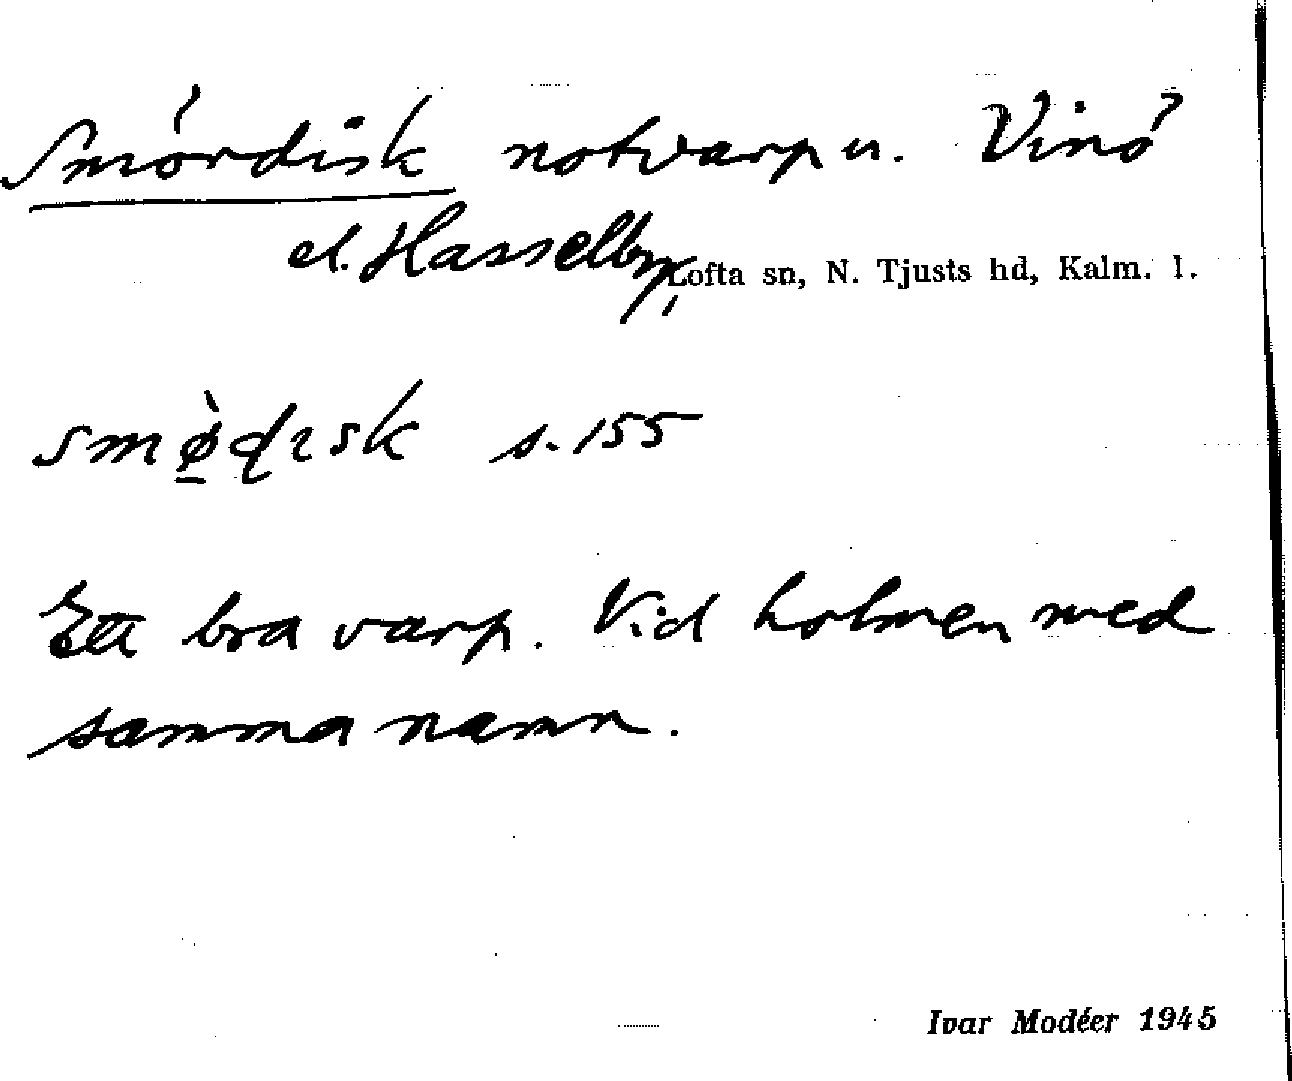 Smördisk notvarp u. Vinö
el. Hasselby,
Lofta sn, N. Tjusts hd, Kalm. l.
s. 155
Ett bra varp. Vid holmen med
samma namn.
Ivar Modéer 1945